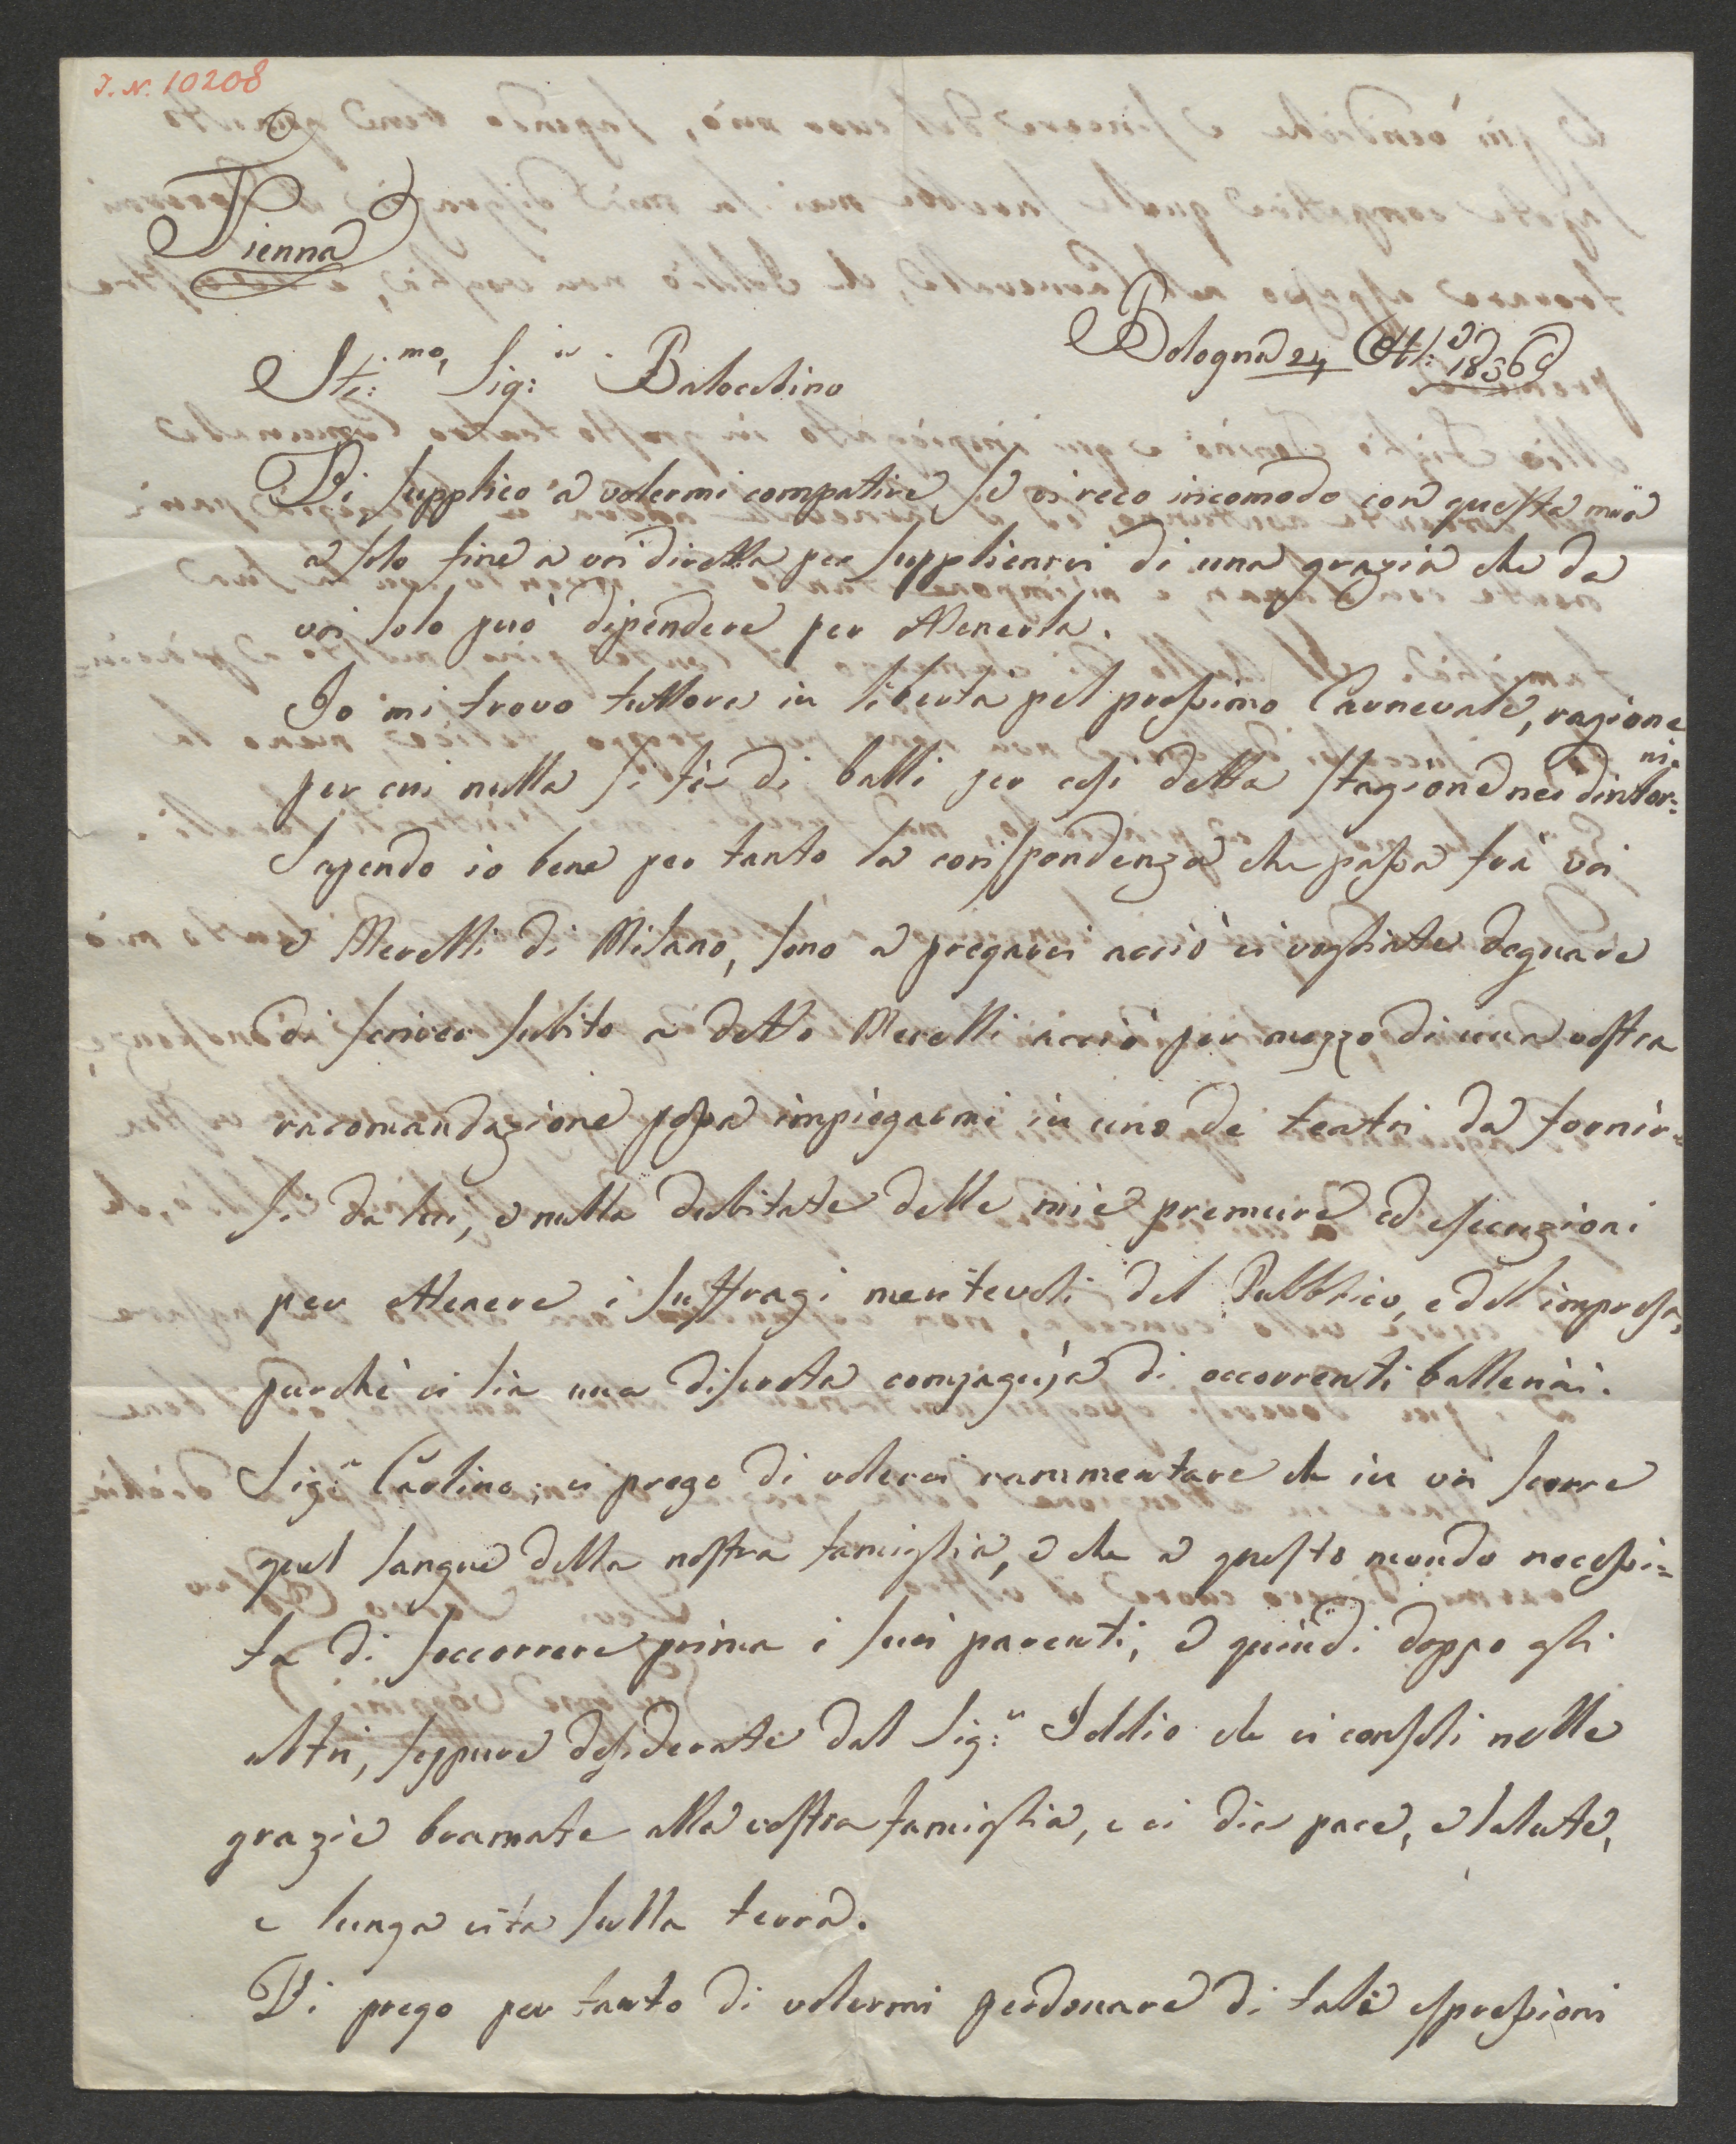 J. N. 10208
Vienna
Bologna 24 Ott:e 1836
Sti:mo, Sig:r Balochino
Vi supplico a volermi compatire, se vi reco incomodo con questa mia
a solo fine a voi diretta per supplicarvi di una grazia che da
voi solo può dipendere per ottenerla.
Io mi trovo tuttora in libertà pel prossimo Carnevale, ragione
per cui nulla si fà di balli per essi detta stagione nei dintor=
ni.
Sapendo io bene per tanto la corispondenza che passa frà voi
e Merelli di Milano, sono a pregarvi acciò vi vogliate degnare
di scriver subito a detto Merelli acciò per mezzo di una vostra
racomandazione possa impiegarmi in uno de teatri da fornir=
si da lui, e nulla dubitate delle mie premure ed esecuzioni
per ottenere i suffragi meritevoli del Pubblico, e dell impresa,
purchè vi sia una discreta compagnia di occorrenti ballerini.
Sig:r Carlino; vi prego di volervi rammentare che in voi scorre
quel sangue della nostra famiglia, e che a questo mondo necessi=
ta di soccorrere prima i suoi parenti, e quindi doppo gli
altri, seppure desiderate dal Sig:r Iddio che vi consoli nelle
grazie bramate alla vostra famiglia, e vi dia pace, e salute,
e lunga vita sulla terra.
Vi prego per tanto di volermi perdonare di tali espressioni